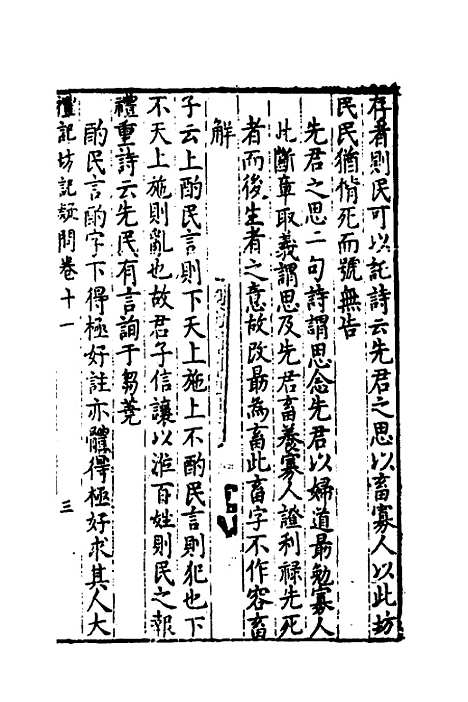 存者則民可以託詩云先君之思以畜寡人以此坊
民民猶偝死而號無告
先君之思二句詩謂思念先君以婦道最勉寡人
此斷章取義謂思及先君畜養寡人證利祿先死
者而後生者之意故改最為畜此畜字不作容畜
解
子云上酌民言則下天上施上不酌民言則犯也下
不天上施則亂也故君子信讓以涖百姓則民之報
禮重詩云先民有言詢于芻蕘
酌民言酌字下得極好註亦體得極好求其人大
禮記坊記疑問卷十一
三